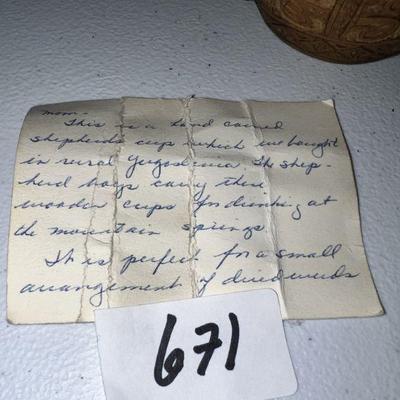 mom -
This is a hand carved
shepherds cup which we bought
in rural Yugoslavia The shep-
herd boys carry these
wooden cups for drinking at
the mountain springs
It is perfect for a small
arrangement of dried weeds
671